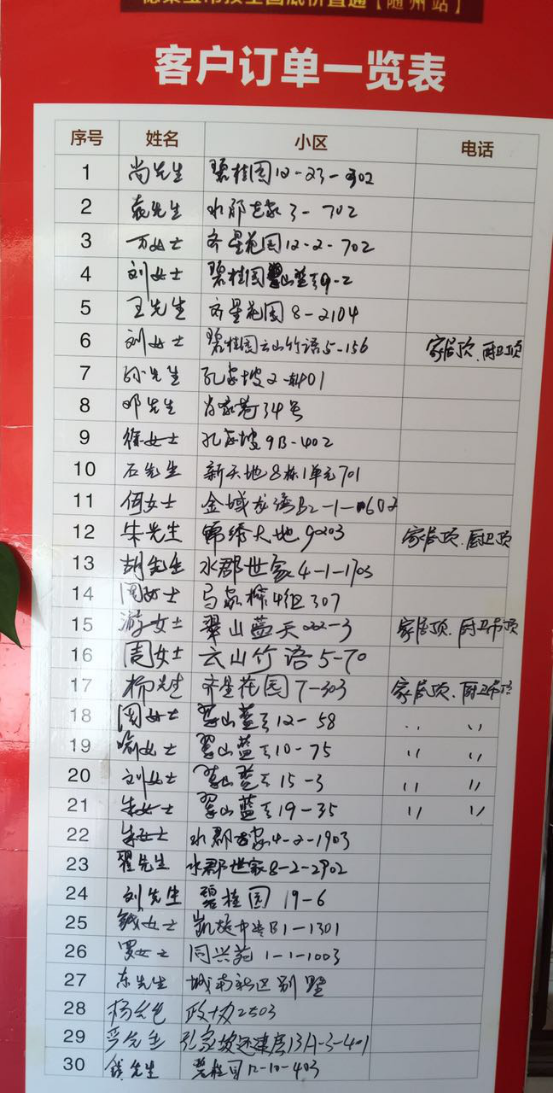 全国底价直通【随州站】
客户订单一览表
序号 姓名 小区 电话
1 尚先生 碧桂园12-23-902
2 袁先生 水郡世家3-702
3 万女士 齐星花园12-2-702
4 刘女士 碧桂园翠山蓝天9-2
5 王先生 齐星花园8-2104
6 刘女士 碧桂园云山竹语5-156 家居顶、厨卫顶
7 孙先生 孔家坡2-401
8 邓先生 肖家巷34号
9 徐女士 孔家坡9B-402
10 石先生 新天地8栋1单元701
11 何女士 金城龙湾B2-1-602
12 朱先生 锦绣大地9203 家居顶、厨卫顶
13 胡先生 水郡世家4-1-1703
14 周女士 马家榨4组307
15 游女士 翠山蓝天222-3 家居顶、厨卫吊顶
16 周女士 云山竹语5-70
17 柳先生 齐星花园7-303 家居顶、厨卫吊顶
18 周女士 翠山蓝天12-58 〃 〃
19 喻女士 翠山蓝天10-75 〃 〃
20 刘女士 翠山蓝天15-3 〃 〃
21 朱女士 翠山蓝天19-35 〃 〃
22 朱女士 水郡世家4-2-1903
23 翟先生 水郡世家8-2-2902
24 刘先生 碧桂园19-6
25 钱女士 凯旋中央B1-1301
26 罗女士 同兴苑1-1-1003
27 东先生 城南新区别墅
28 杨 政协2503
29 先生 孔家坡还建房13A-3-401
30 钱先生 碧桂园12-10-403